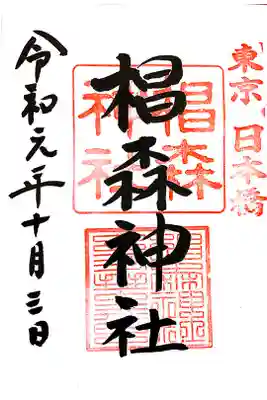 東京 日本橋
椙森神社
椙森
神社
令和元年十月三日